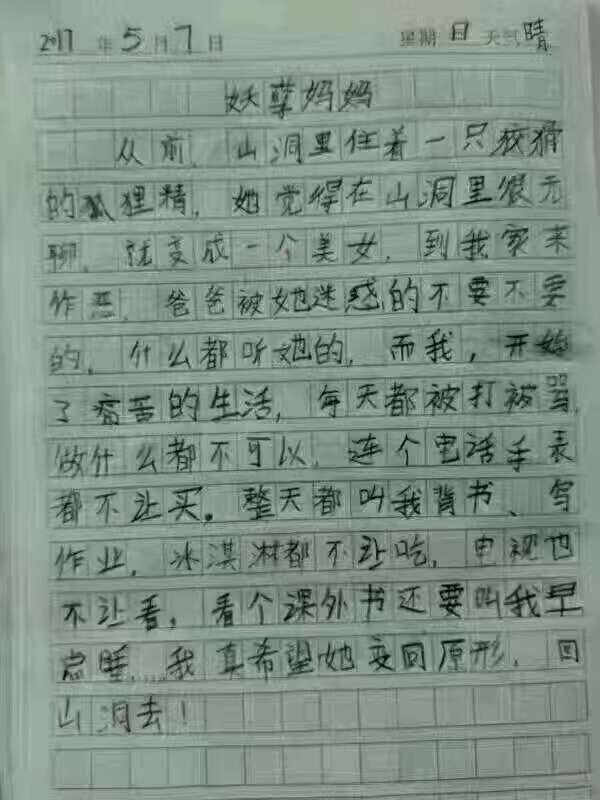 2017 年 5 月 7 日 星期 日 天气 晴
妖孽妈妈
从前，山洞里住着一只狡猾
的狐狸精，她觉得在山洞里很无
聊，就变成一个美女，到我家来
作恶，爸爸被她迷惑的不要不要
的，什么都听她的，而我，开始
了痛苦的生活，每天都被打被骂，
做什么都不可以，连个电话手表
都不让买。整天都叫我背书、写
作业，冰淇淋都不让吃，电视也
不让看，看个课外书还要叫我早
点睡……我真希望她变回原形，回
山洞去！